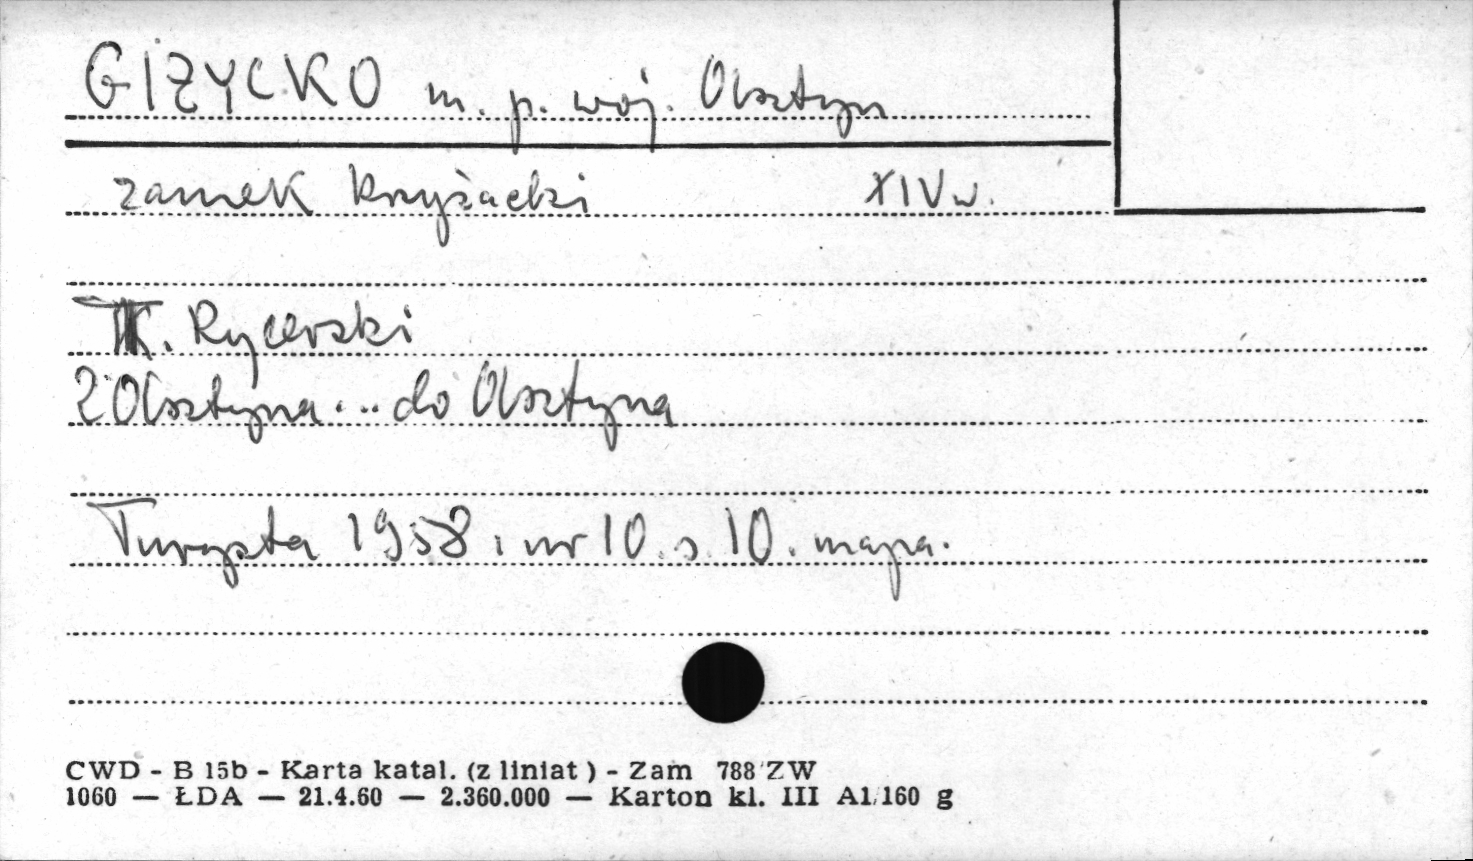 GIŻYCKO m. p. woj. Olsztyn
zamek krzyżacki XIV w.
K. Rycerski
Z Olsztyna... do Olsztyna
Turysta 1958, nr 10. s. 10. mapa.
CWD - B 15b - Karta katal. (z liniat) - Zam 788 ZW
1060 — ŁDA — 21.4.60 — 2.360.000 — Karton kl. III A1/160 g